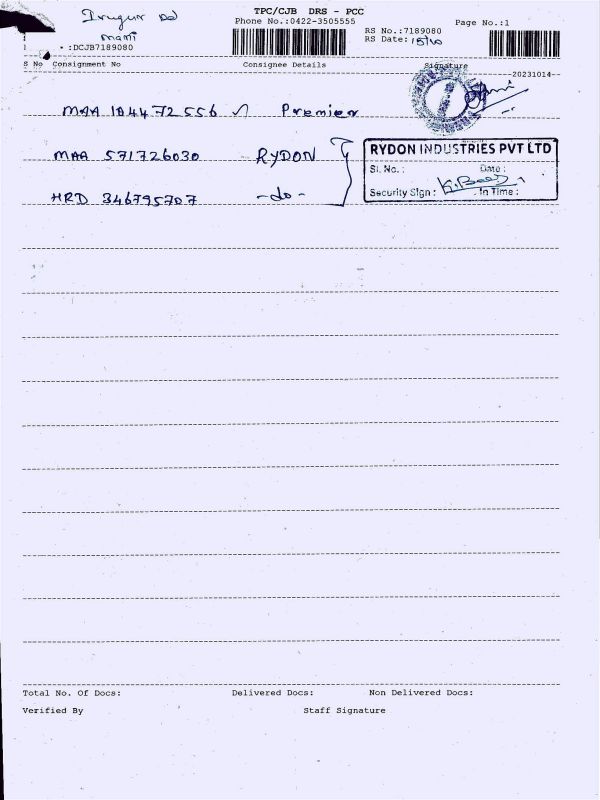 Irugur Rd
TPC/CJB DRS - PCC
Phone No.:0422-3505555
Page No.:1
mani
RS No.:7189080
:DCJB7189080
RS Date: 15/10
S No Consignment No Consignee Details Signature
20231014
MAA 104472556 Premier
MAA 571726030 RYDON
RYDON INDUSTRIES PVT LTD
Sl. No. : Date :
HRD 346795707 -do-
Security Sign : In Time :
Total No. Of Docs: Delivered Docs: Non Delivered Docs:
Verified By Staff Signature